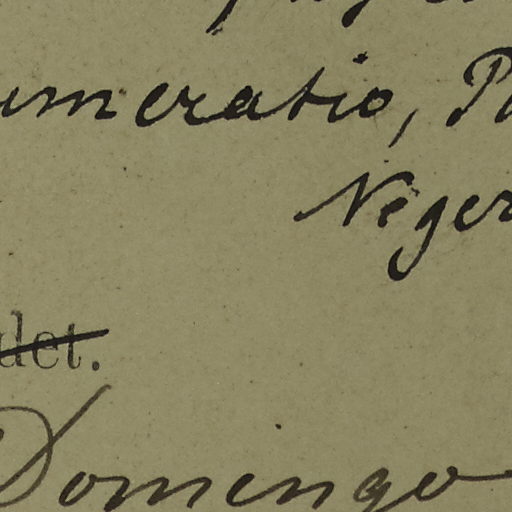 umeratio, P
Neger
det.
Domingo